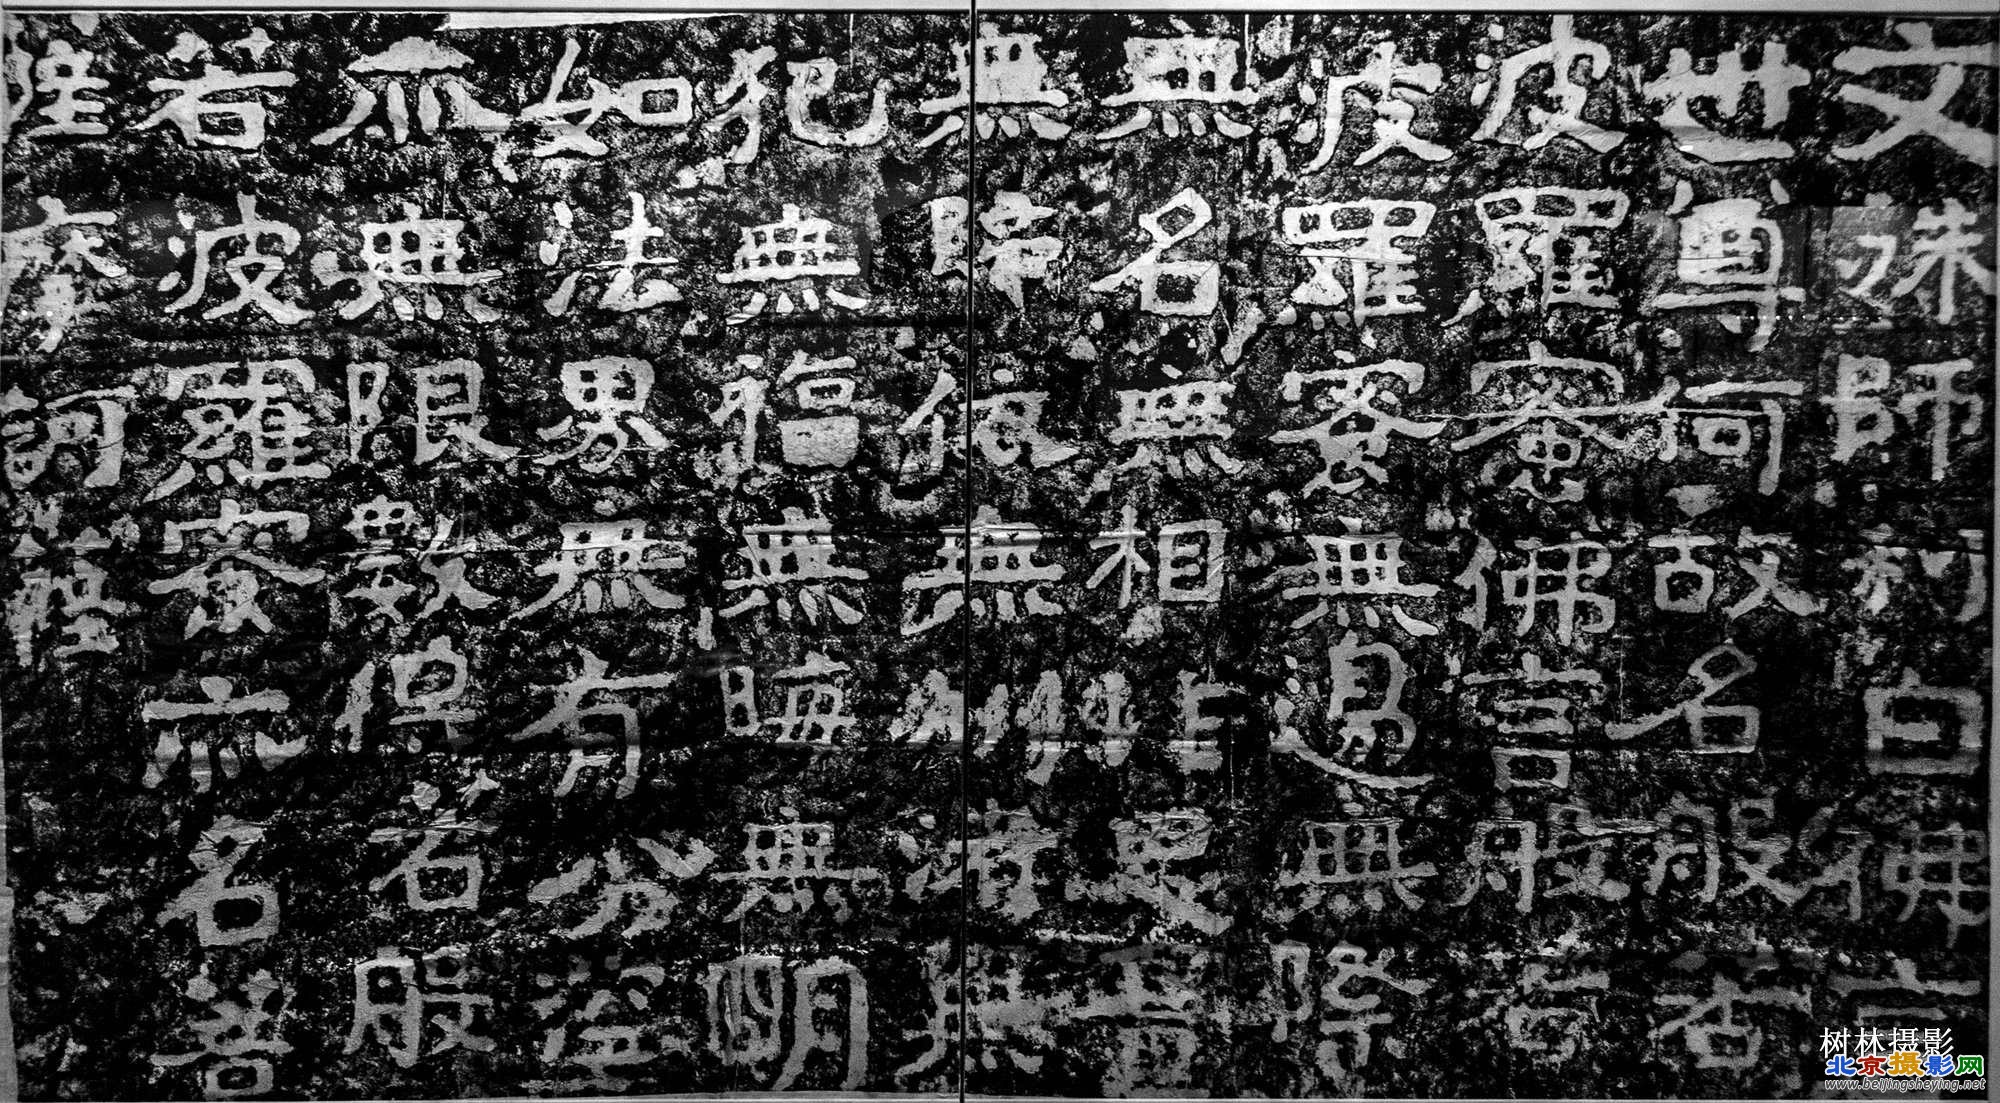 文殊師利白佛言
世尊何故名般若
波羅蜜佛言般若
波羅蜜無邊無際
無名無相非思量
無歸依無洲渚無
犯無福無晦無明
如法界無有分齊
亦無限數名般
若波羅蜜亦名菩
薩摩訶薩
树林摄影
北京摄影网
www.beijingsheying.net